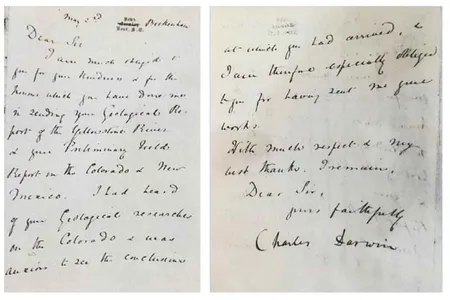 May 2nd
Down,
Beckenham,
Kent. S.E.
Dear Sir
I am much obliged to
you for your kindness & for the
honour which you have done me
in sending your Geological Re-
port of the Yellowstone River
& your Preliminary Field
Report on the Colorado & New
Mexico. I had heard
of your Geological researches
on the Colorado & was
anxious to see the conclusions
at which you had arrived, &
I am therefore especially obliged
to you for having sent me your
works.
With much respect & my
best thanks. I remain,
Dear Sir,
yours faithfully
Charles Darwin